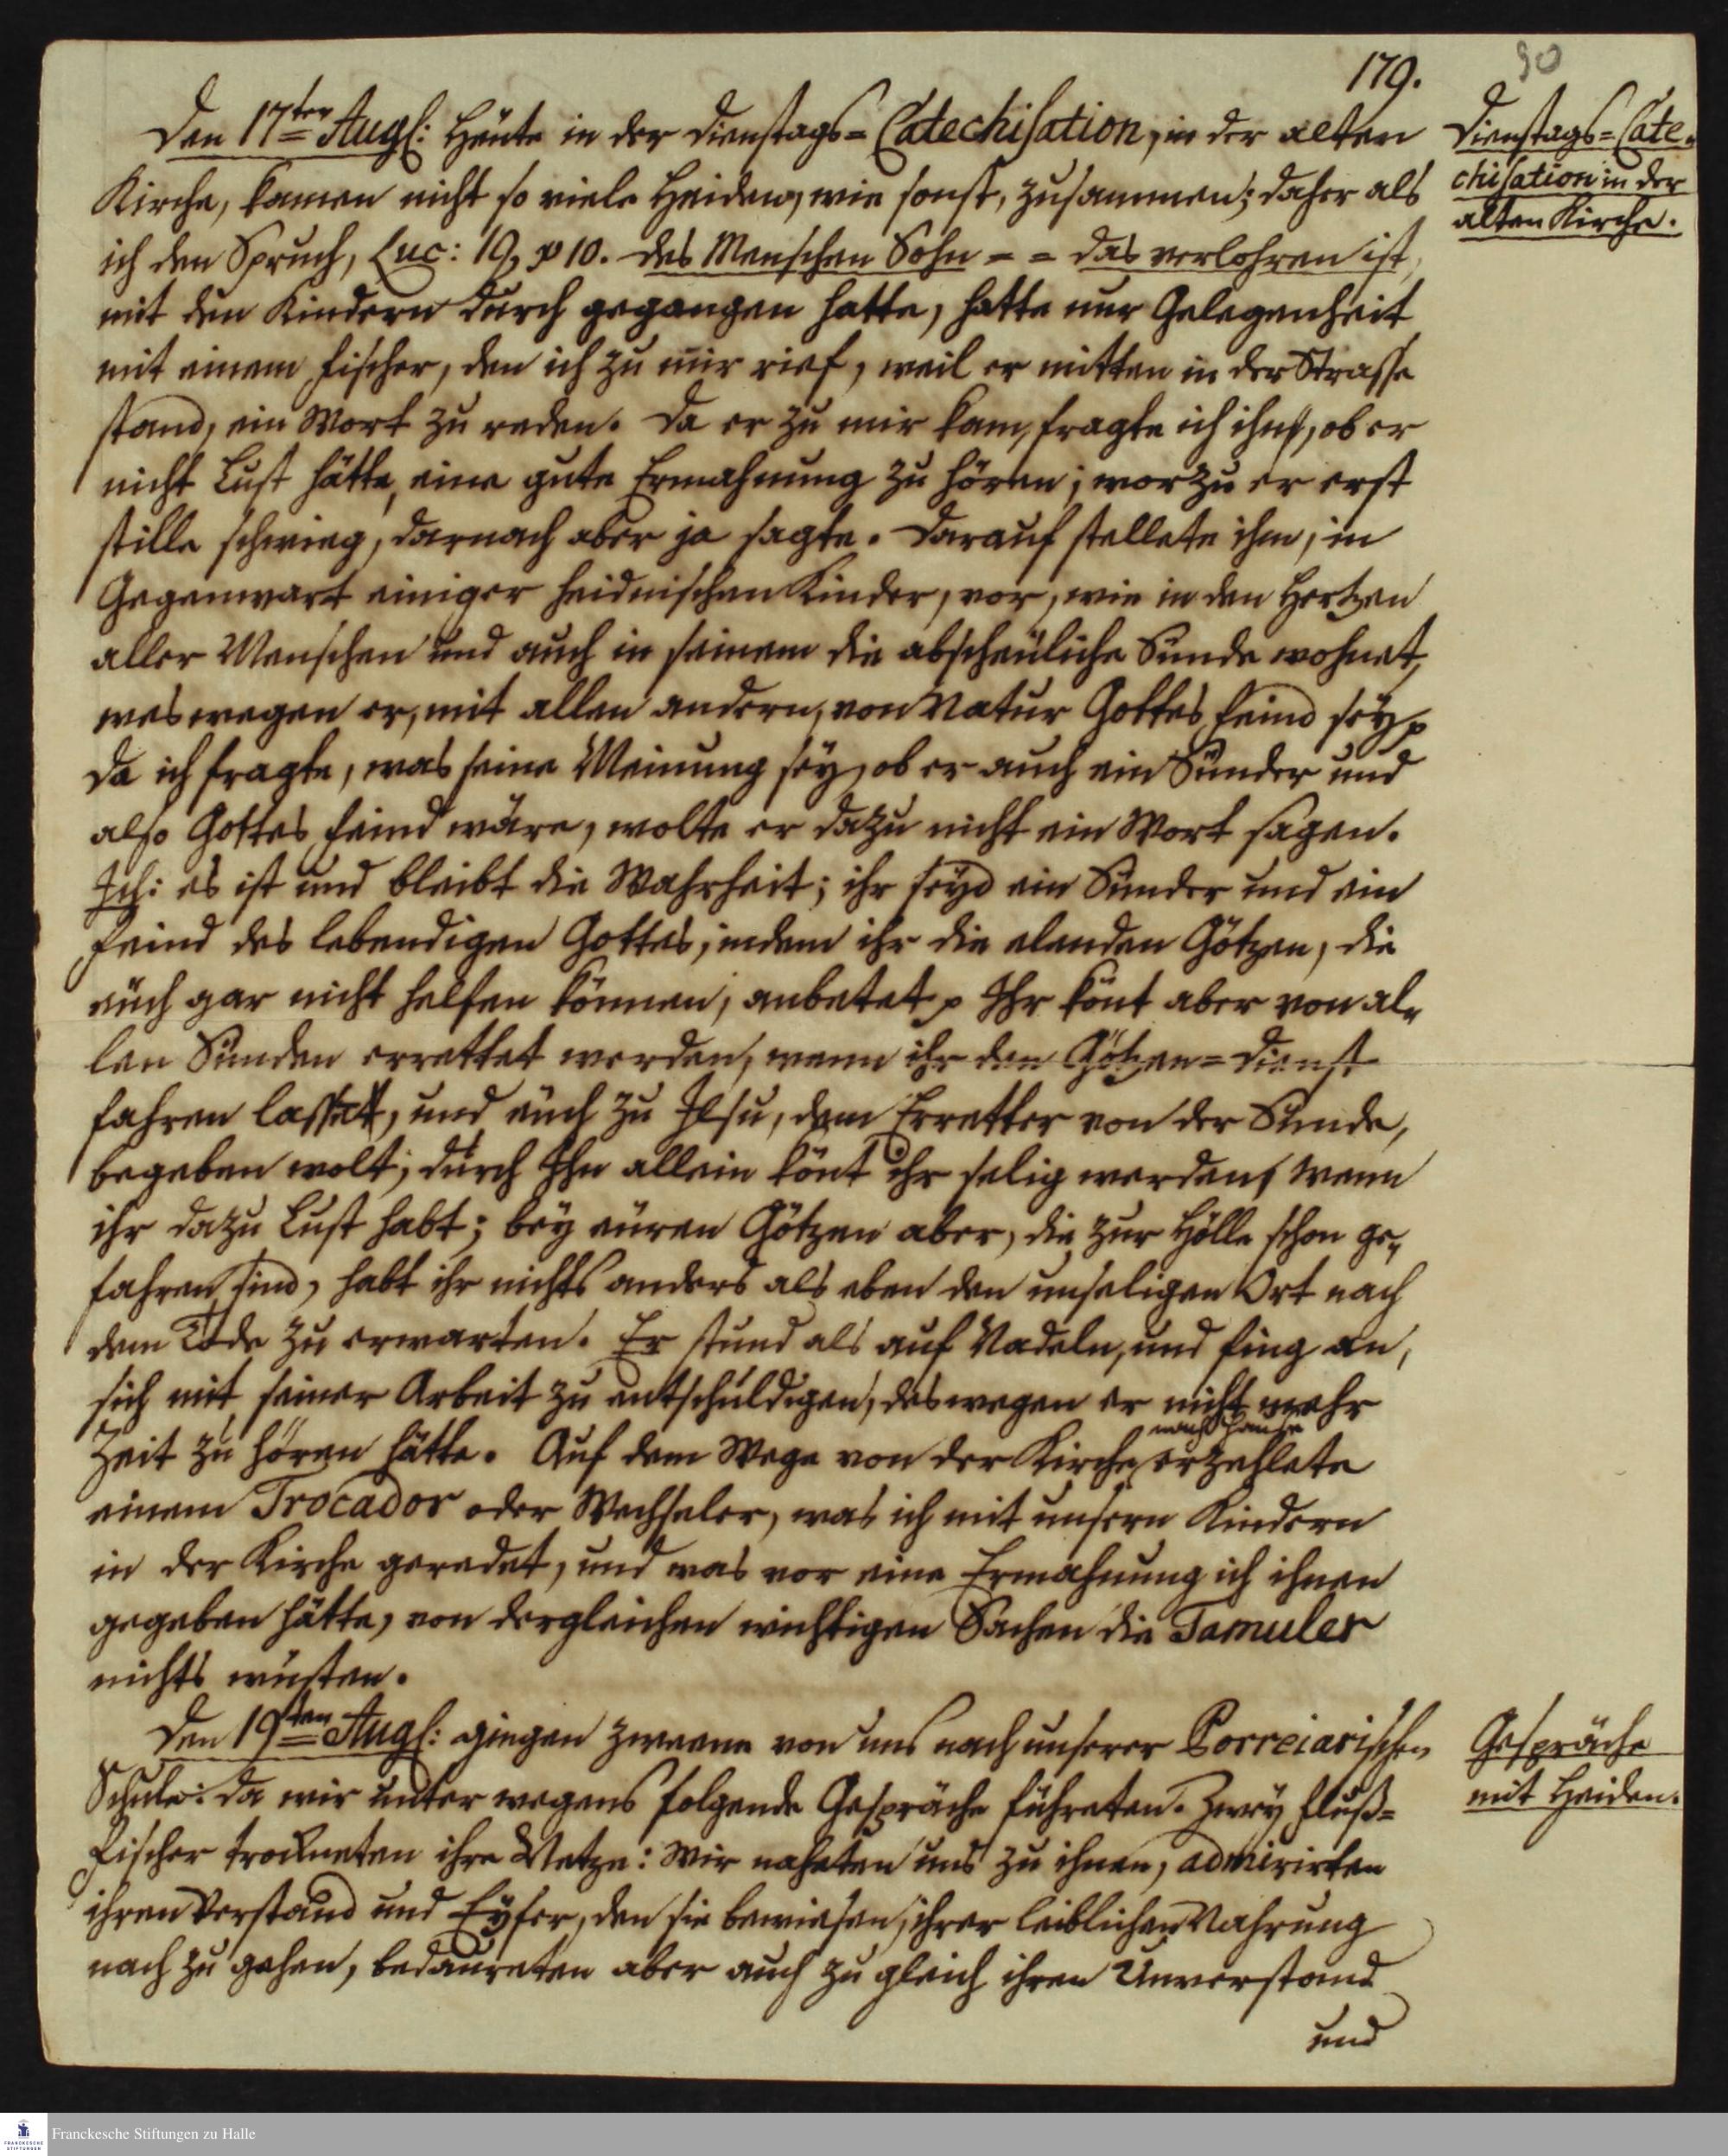 179.
90
Den 17ten Augs: Heute in der Dienstags= Catechisation, in der alten
Kirche, kamen nicht so viele Heiden, wie sonst, zusammen; daher als
ich den Spruch, Luc: 19, v 10. des Menschen Sohn = = das verlohren ist,
mit den Kindern durch gegangen hatte, hatte nur Gelegenheit
mit einem Fischer, den ich zu mir rief, weil er mitten in der Strasse
stand, ein Wort zu reden. Da er zu mir kam, fragte ich ihn, ob er
nicht Lust hätte, eine gute Ermahnung zu hören; worzu er erst
stille schwieg, darnach aber ja sagte. Darauf stellete ihm, in
Gegenwart einiger heidnischen Kinder, vor, wie in den Hertzen
aller Menschen und auch in seinem die abscheuliche Sünde wohnet,
weswegen er, mit allen andern, von Natur Gottes Feind sey p
Da ich fragte, was seine Meinung sey, ob er auch ein Sünder und
also Gottes Feind wäre, wolte er dazu nicht ein Wort sagen.
Ich: es ist und bleibt die Wahrheit; ihr seyd ein Sünder und ein
Feind des lebendigen Gottes, indem ihr die elenden Götzen, die
euch gar nicht helfen können, anbetet p Ihr könt aber von al=
len Sünden errettet werden, wenn ihr den Götzen=dienst
fahren lasset, und euch zu Jesu, dem Erretter von der Sünde,
begeben wolt; durch Ihn allein könt ihr selig werden, wenn
ihr dazu Lust habt; bey euren Götzen aber, die zur Hölle schon ge=
fahren sind, habt ihr nichts anders als eben den unseligen Ort nach
dem Tode zu erwarten. Er stund als auf Nadeln, und fing an,
sich mit seiner Arbeit zu entschuldigen, deswegen er nicht mehr
Zeit zu hören hätte. Auf dem Wege von der Kirche nach Hause erzehlete
einem Trocador oder Wechseler, was ich mit unsern Kindern
in der Kirche geredet, und was vor eine Ermahnung ich ihnen
gegeben hätte, von dergleichen wichtigen Sachen die Tamuler
nichts wüsten.
Den 19ten Augs: giengen zweene von uns nach unserer Porreiarischen
Schule: da wir unter wegens folgende Gespräche führeten. Zwey Fluß=
Fischer trockneten ihre Netze: Wir naheten uns zu ihnen, admirirten
ihren Verstand und Eyfer, den sie bewiesen, ihrer leiblichen Nahrung
nach zu gehen, bedaureten aber auch zu gleich ihren Unverstand
und
Dienstags=Cate=
chisation in der
alten Kirche.
Gespräche
mit Heiden.
FRANCKESCHE
STIFTUNGEN
Franckesche Stiftungen zu Halle